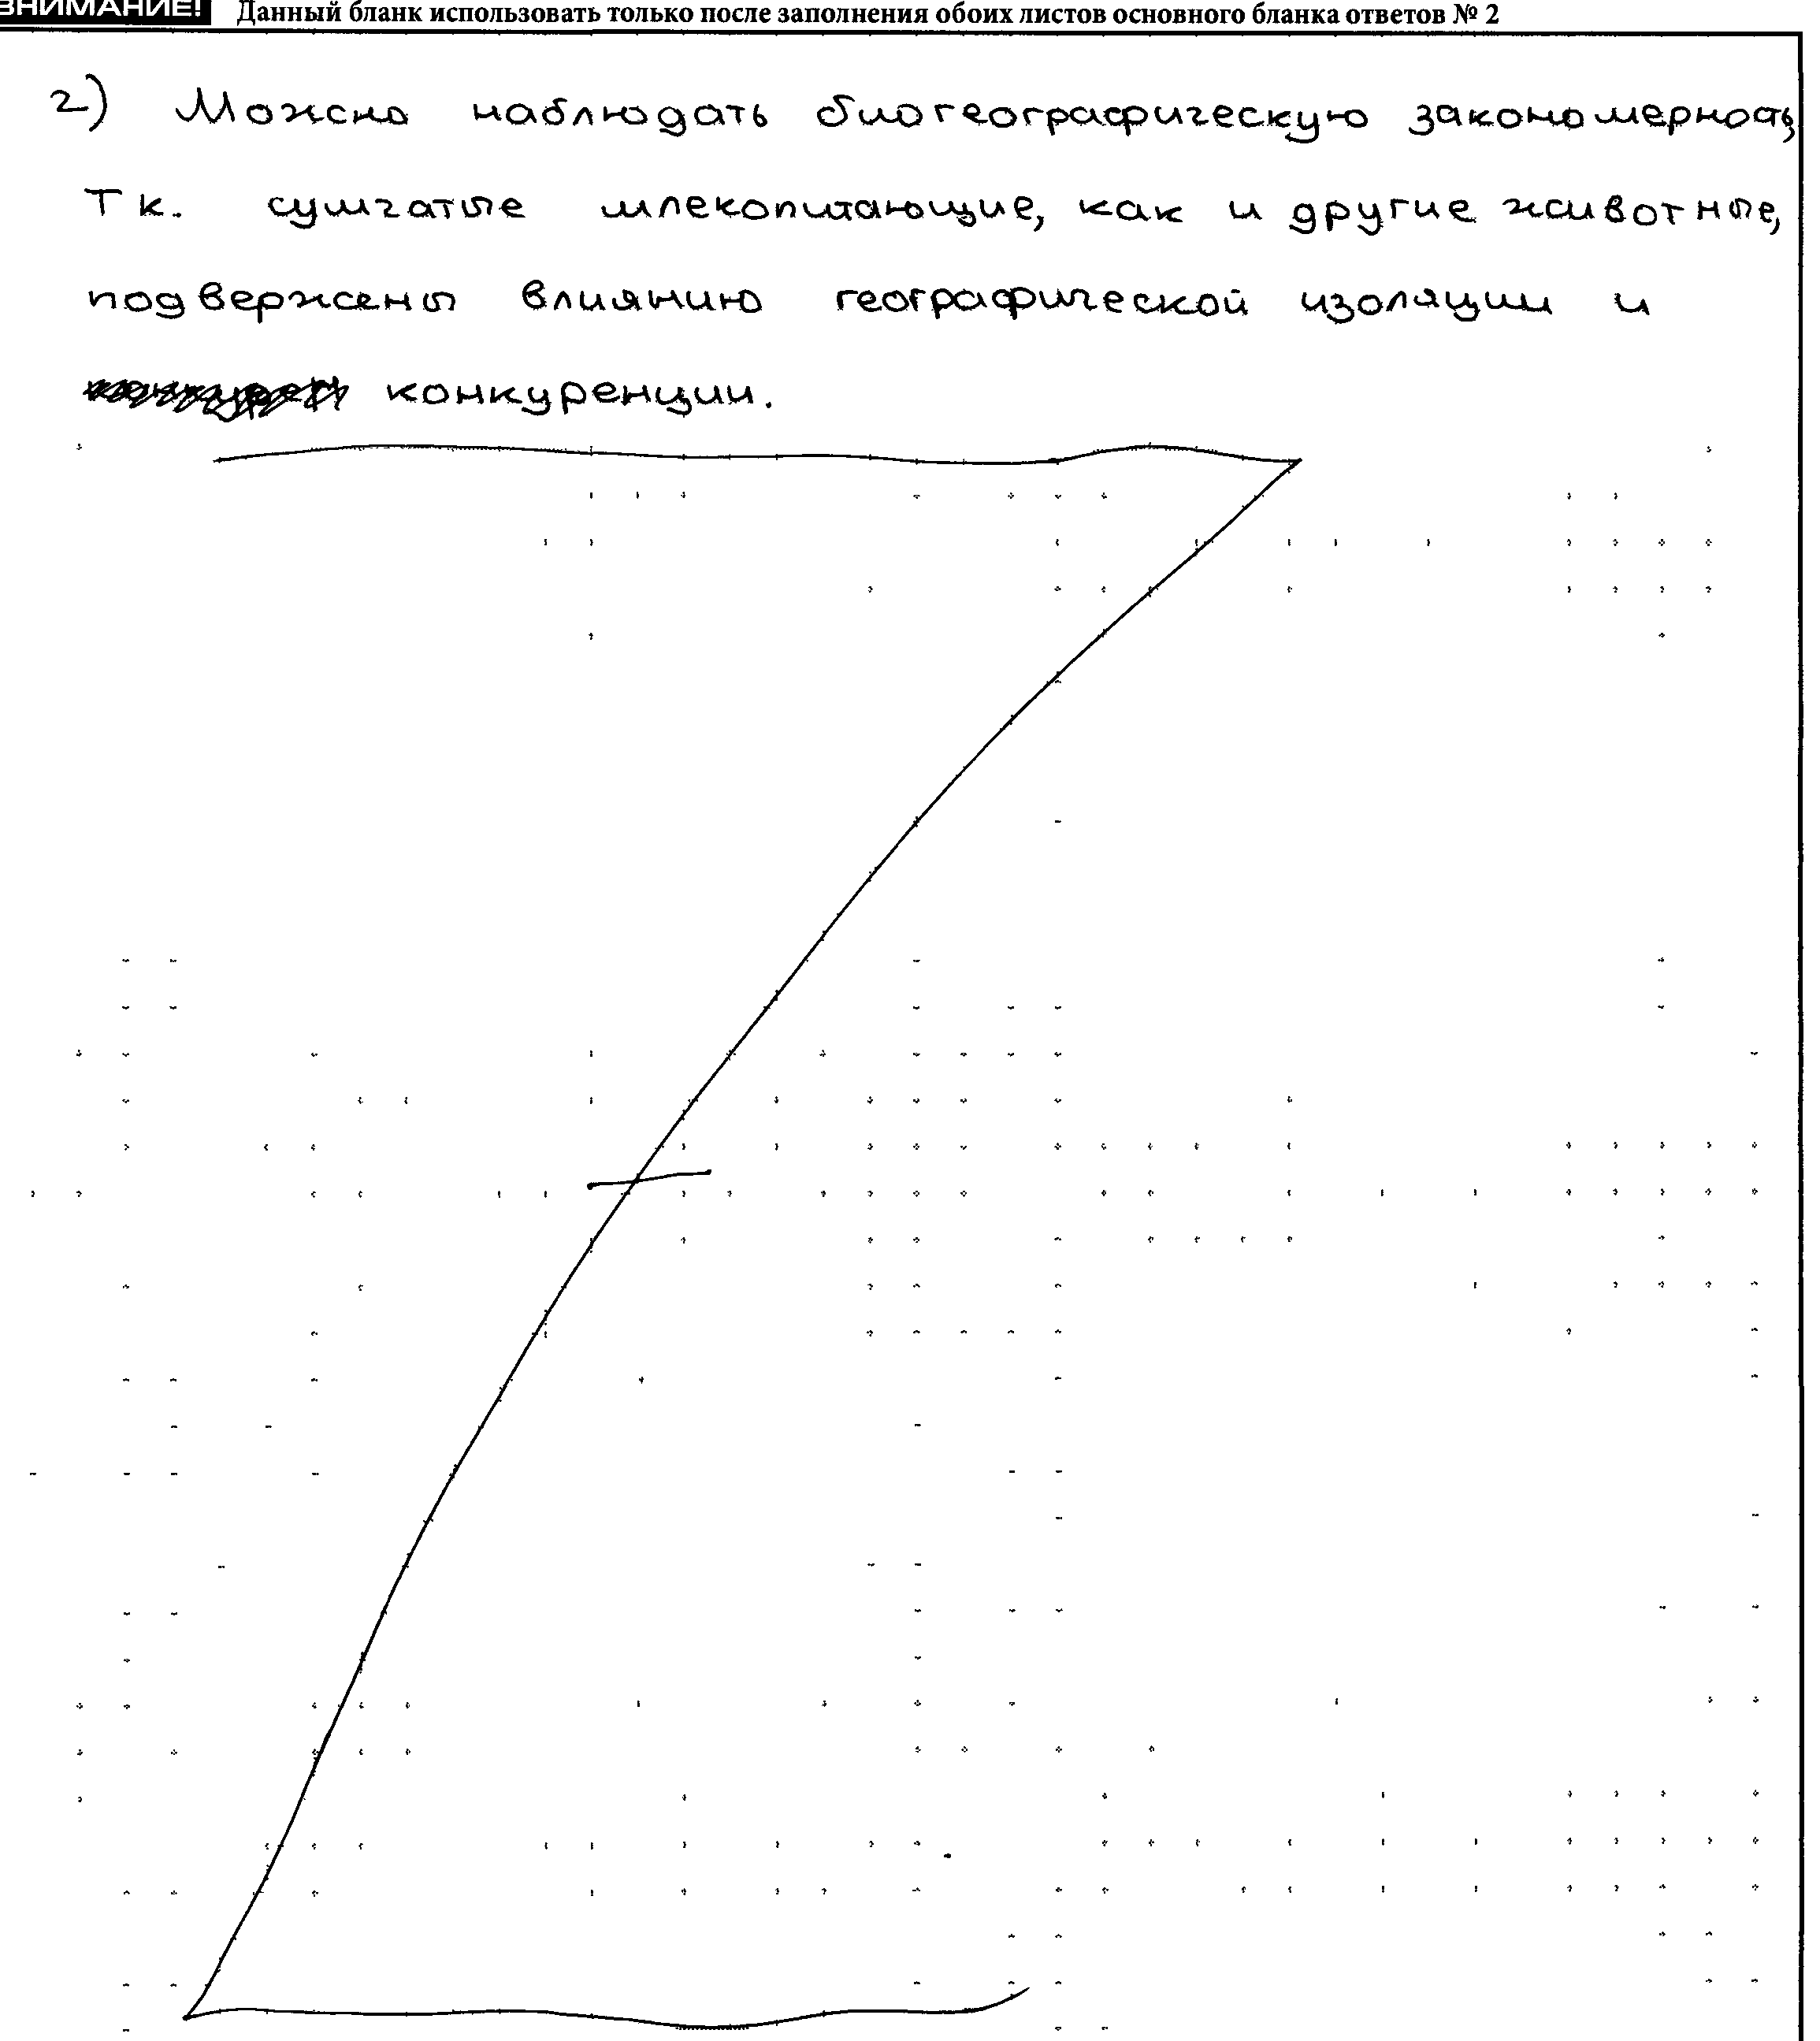 ВНИМАНИЕ! Данный бланк использовать только после заполнения обоих листов основного бланка ответов № 2
2) Можно наблюдать биогеографическую закономерность,
Тк. сумчатые млекопитающие, как и другие животные,
подвержены влиянию географической изоляции и
конкуренции.